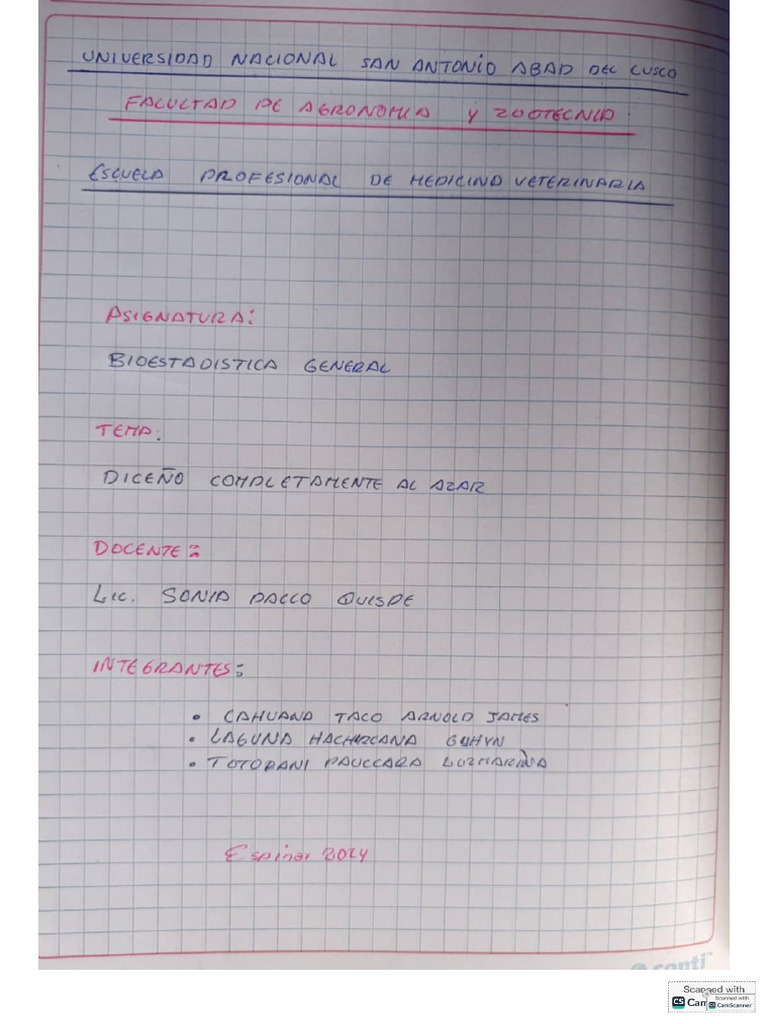 UNIVERSIDAD NACIONAL SAN ANTONIO ABAD DEL CUSCO
FACULTAD DE AGRONOMIA Y ZOOTECNIA
ESCUELA PROFESIONAL DE MEDICINA VETERINARIA
ASIGNATURA:
BIOESTADISTICA GENERAL
TEMA:
DICEÑO COMPLETAMENTE AL AZAR
DOCENTE:
LIC. SONIA PACCO QUISPE
INTEGRANTES:
• CAHUANA TACO ARNOLD JAMES
• LAGUNA
• TOTORANI PAUCCARA LUZMARINA
Espinar 2024
conti
Scanned with
CS Cam
Scanned with
CS CamScanner